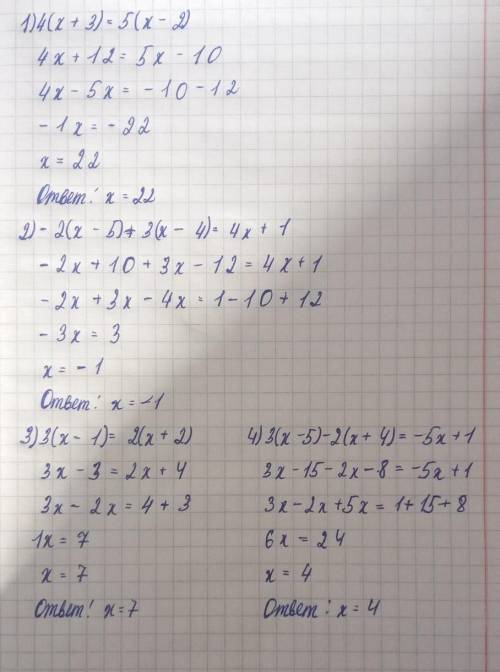 1) 4(x + 3) = 5(x - 2)
4x + 12 = 5x - 10
4x - 5x = - 10 - 12
- 1x = - 22
x = 22
Ответ: x = 22
2) - 2(x - 5) + 3(x - 4) = 4x + 1
- 2x + 10 + 3x - 12 = 4x + 1
- 2x + 3x - 4x = 1 - 10 + 12
- 3x = 3
x = - 1
Ответ: x = -1
3) 3(x - 1) = 2(x + 2)
3x - 3 = 2x + 4
3x - 2x = 4 + 3
1x = 7
x = 7
Ответ: x = 7
4) 3(x - 5) - 2(x + 4) = -5x + 1
3x - 15 - 2x - 8 = -5x + 1
3x - 2x + 5x = 1 + 15 + 8
6x = 24
x = 4
Ответ: x = 4